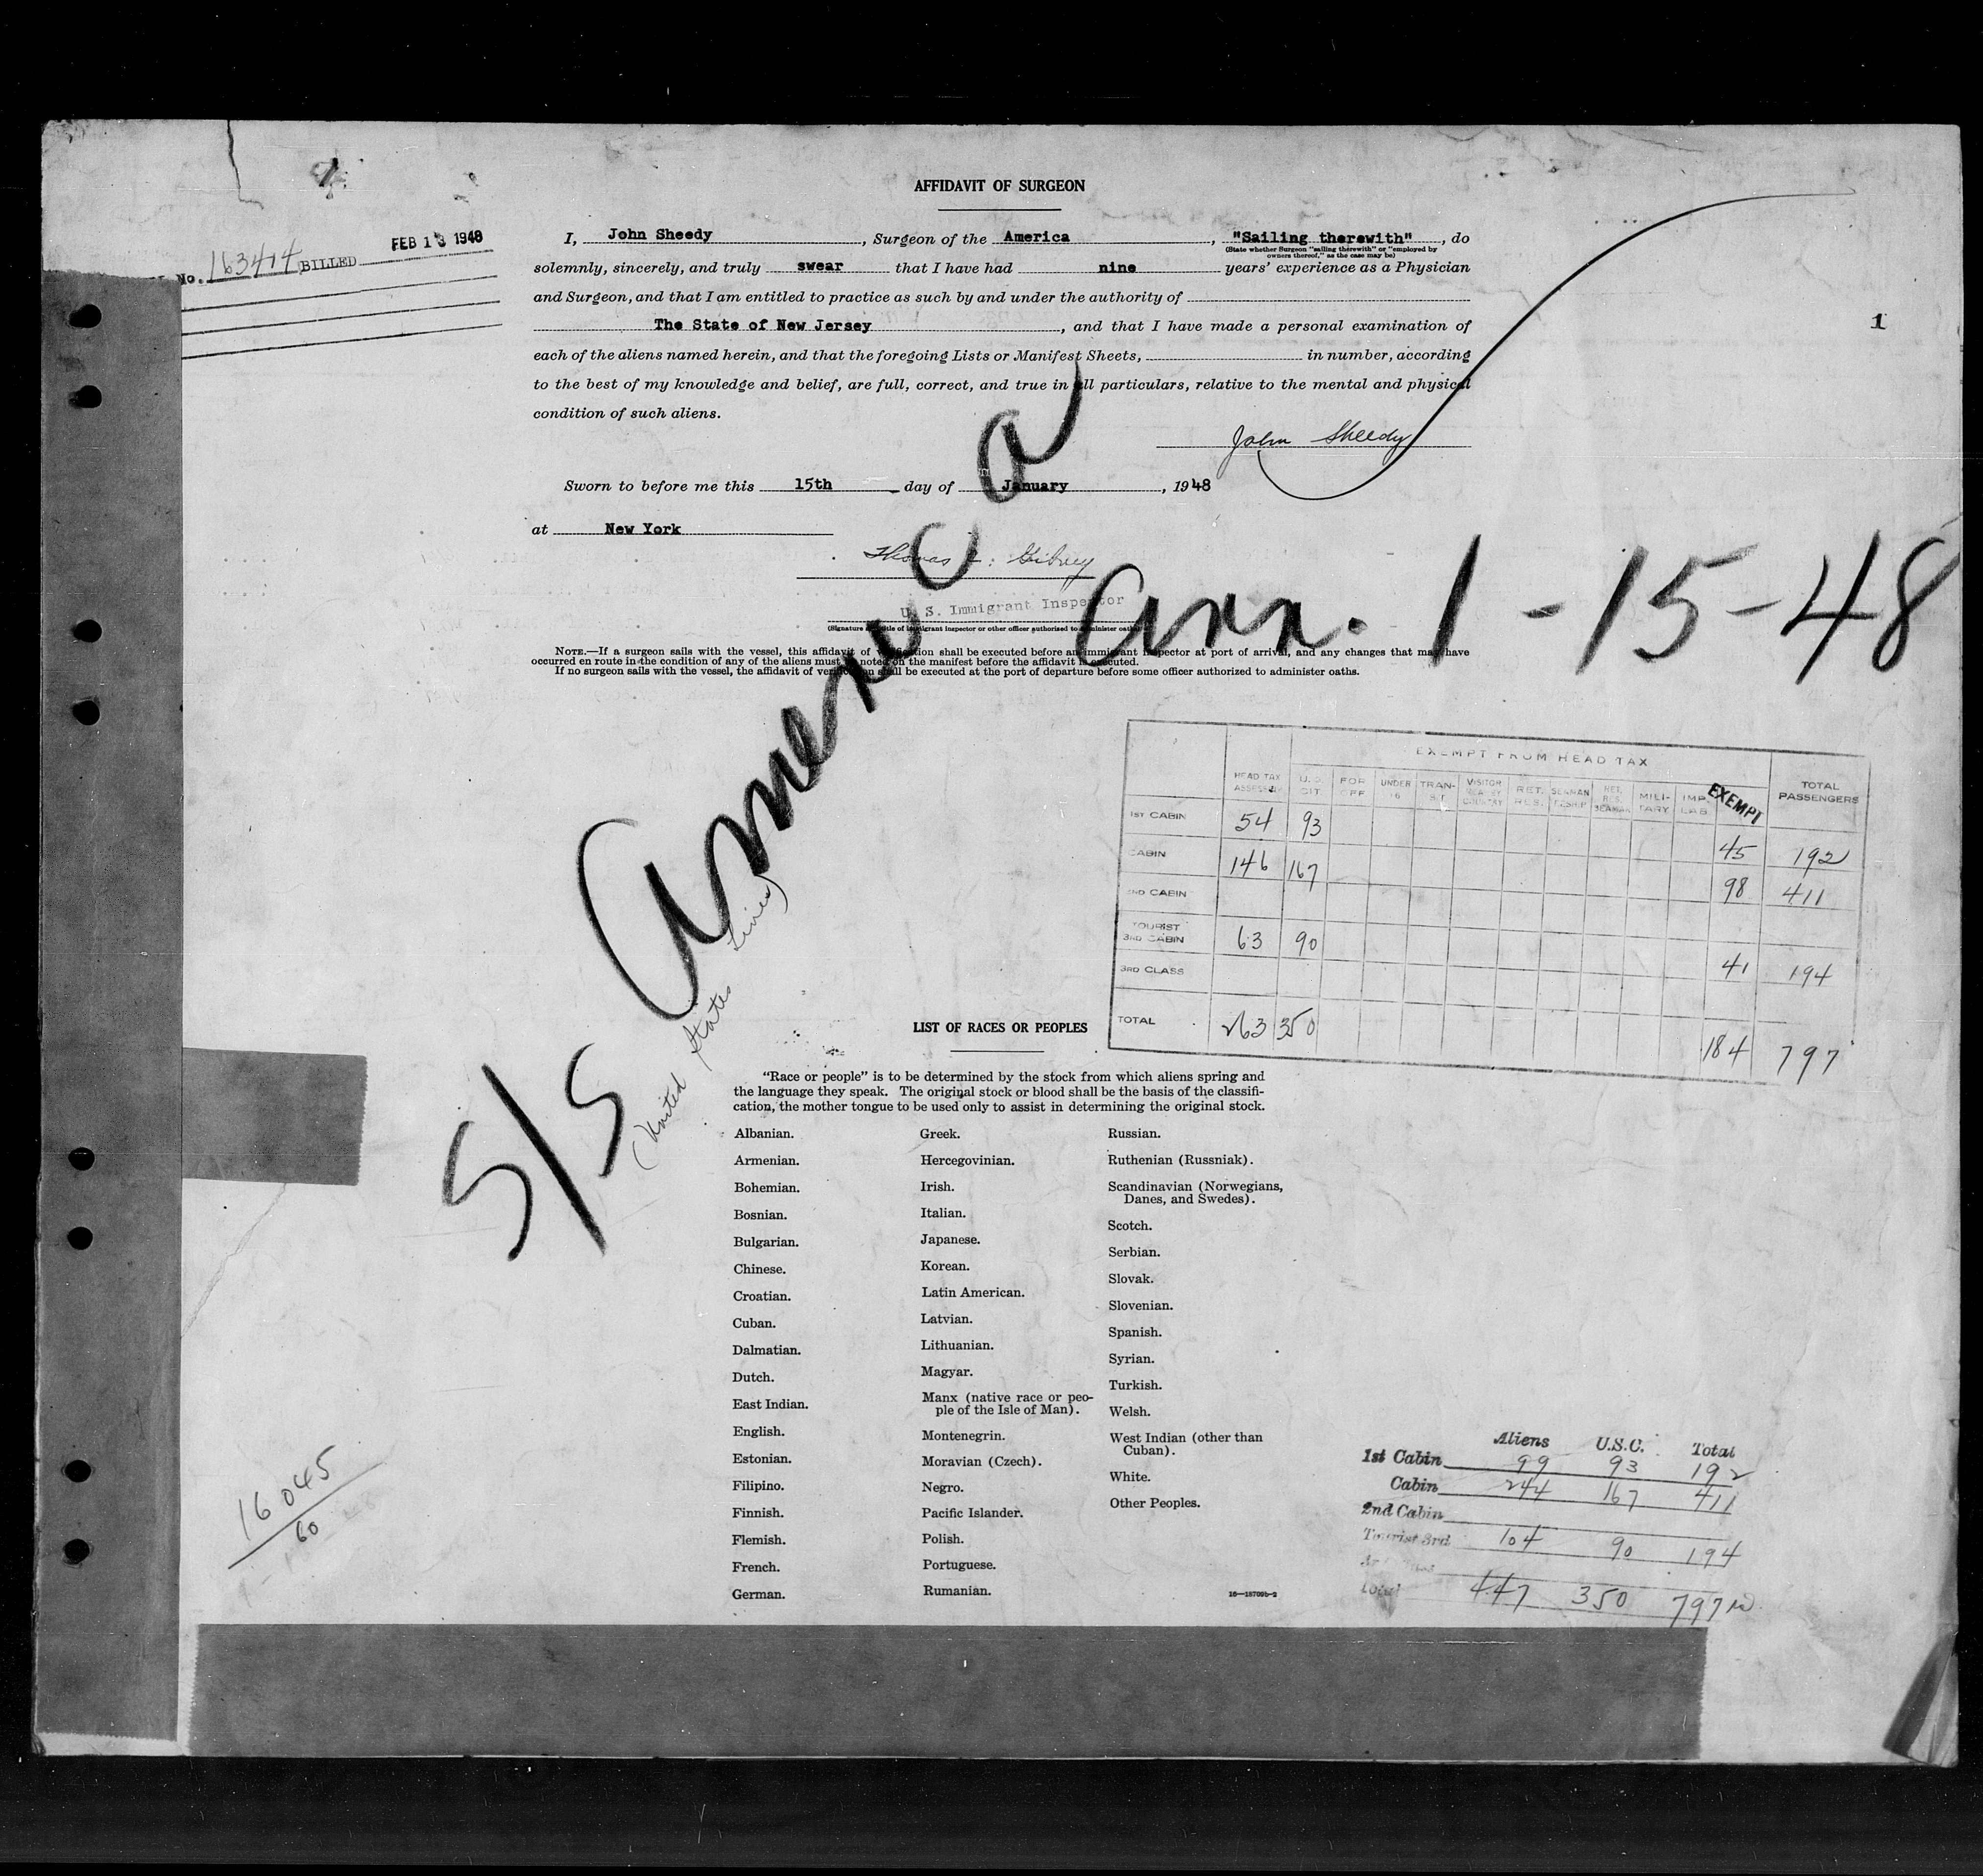 AFFIDAVIT OF SURGEON
No. 163414 BILLED FEB 13 1948
I, John Sheedy, Surgeon of the America, "Sailing therewith", do
(State whether Surgeon "sailing therewith" or "employed by
owners thereof," as the case may be)
solemnly, sincerely, and truly swear that I have had nine years' experience as a Physician
and Surgeon, and that I am entitled to practice as such by and under the authority of
The State of New Jersey, and that I have made a personal examination of
1
each of the aliens named herein, and that the foregoing Lists or Manifest Sheets, in number, according
to the best of my knowledge and belief, are full, correct, and true in all particulars, relative to the mental and physical
condition of such aliens.
John Sheedy
Sworn to before me this 15th day of January, 1948
at New York
Thomas Gibney
U. S. Immigrant Inspector
(Signature and title of immigrant inspector or other officer authorized to administer oaths)
NOTE.—If a surgeon sails with the vessel, this affidavit of verification shall be executed before an immigrant inspector at port of arrival, and any changes that may have
occurred en route in the condition of any of the aliens must be noted on the manifest before the affidavit is executed.
If no surgeon sails with the vessel, the affidavit of verification shall be executed at the port of departure before some officer authorized to administer oaths.
S/S America
(United States Lines)
Arr. 1-15-48
EXEMPT FROM HEAD TAX
HEAD TAX ASSESSED U.S. CIT. FOR OFF UNDER 16 TRANSIT VISITOR COUNTRY RET. RES. SEAMAN RET. SEAMAN MILITARY IMP. LAB. EXEMPT TOTAL PASSENGERS
1ST CABIN 54 93 45 192
CABIN 146 167 98 411
2ND CABIN
TOURIST 3RD CABIN 63 90 41 194
3RD CLASS
TOTAL 263 350 184 797
LIST OF RACES OR PEOPLES
"Race or people" is to be determined by the stock from which aliens spring and
the language they speak. The original stock or blood shall be the basis of the classifi-
cation, the mother tongue to be used only to assist in determining the original stock.
Albanian.
Armenian.
Bohemian.
Bosnian.
Bulgarian.
Chinese.
Croatian.
Cuban.
Dalmatian.
Dutch.
East Indian.
English.
Estonian.
Filipino.
Finnish.
Flemish.
French.
German.
Greek.
Hercegovinian.
Irish.
Italian.
Japanese.
Korean.
Latin American.
Latvian.
Lithuanian.
Magyar.
Manx (native race or peo-
ple of the Isle of Man).
Montenegrin.
Moravian (Czech).
Negro.
Pacific Islander.
Polish.
Portuguese.
Rumanian.
Russian.
Ruthenian (Russniak).
Scandinavian (Norwegians,
Danes, and Swedes).
Scotch.
Serbian.
Slovak.
Slovenian.
Spanish.
Syrian.
Turkish.
Welsh.
West Indian (other than
Cuban).
White.
Other Peoples.
Aliens U.S.C. Total
1st Cabin 99 93 192
Cabin 244 167 411
2nd Cabin
Tourist 3rd 104 90 194
Total 447 350 797
16 045
60